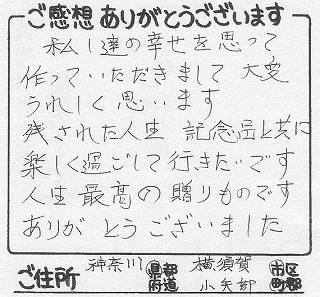 ご感想ありがとうございます
私し達の幸せを思って
作っていただきまして 大変
うれしく思います
残された人生 記念品と共に
楽しく過ごして行きたいです
人生 最高の贈りものです
ありがとうございました
ご住所 神奈川 都道府県 横須賀 市区町郡 小矢部